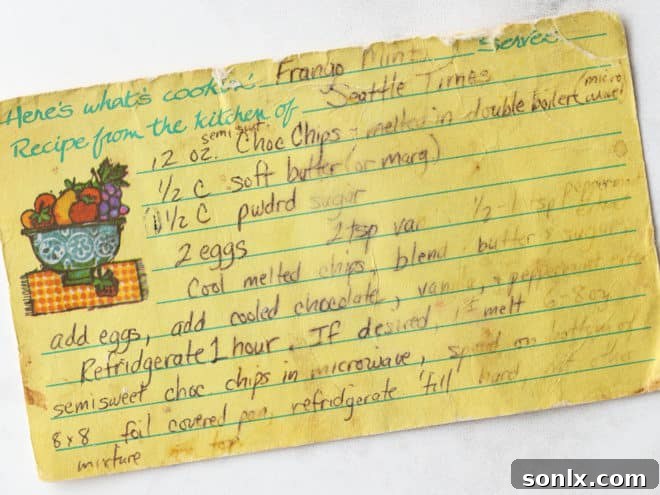 Here's what's cookin' Frango Mints Serves
Recipe from the kitchen of Seattle Times
12 oz. semi swt. Choc Chips - melted in double boiler (micro
1/2 C soft butter (or marg)
1 1/2 C pwdrd sugar
2 eggs 2 tsp van 1/2 - 1 tsp
Cool melted chips, blend butter &
add eggs, add cooled chocolate, van & peppermint
Refridgerate 1 hour. If desired, 1st melt 6-8 oz
semisweet choc chips in microwave, spread on bottom of
8x8 foil covered pan, refridgerate 'till hard,
mixture on top
sonlx.com